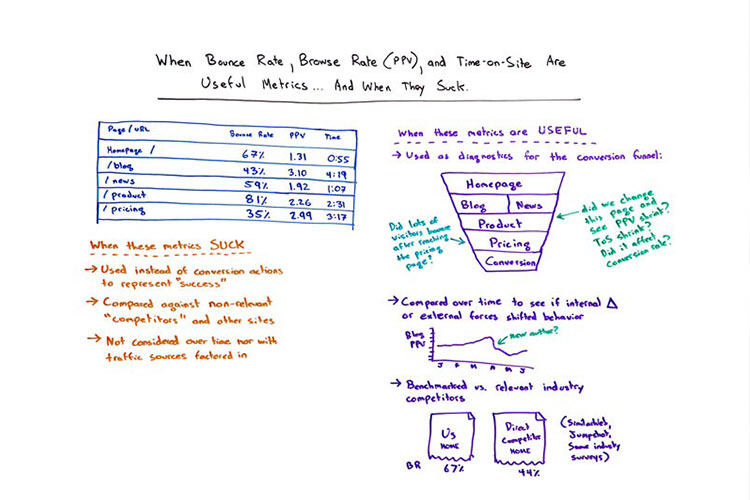 When Bounce Rate, Browse Rate (PPV), and Time-on-Site Are
Useful Metrics... And When They Suck.
Page/URL Bounce Rate PPV Time
Homepage / 67% 1.31 0:55
/blog 43% 3.10 4:19
/news 59% 1.92 1:07
/product 81% 2.26 2:31
/pricing 35% 2.99 3:17
When these metrics SUCK
→ Used instead of conversion actions
to represent "success"
→ Compared against non-relevant
"competitors" and other sites
→ Not considered over time nor with
traffic sources factored in
When these metrics are USEFUL
→ Used as diagnostics for the conversion funnel:
Homepage
Blog News
Product
Pricing
Conversion
Did lots of
visitors bounce
after reaching
the pricing
page?
did we change
this page and
see PPV shrink?
ToS shrink?
Did it affect
conversion rate?
→ Compared over time to see if internal Δ
or external forces shifted behavior
Blog
PPV
new author?
J F M A M J
→ Benchmarked vs. relevant industry
competitors
Us
HOME
Direct
Competitor
HOME
(SimilarWeb,
Jumpshot,
Some industry
surveys)
BR 67% 44%